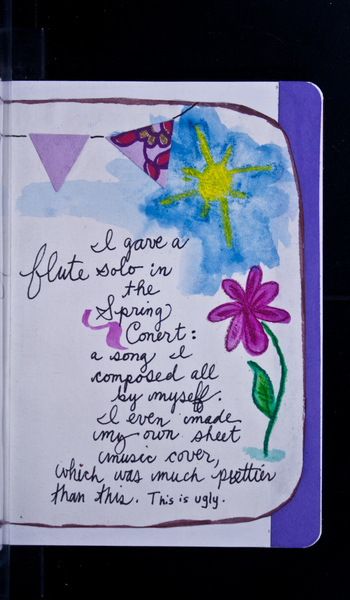 I gave a
flute solo in
the
Spring
Conert:
a song I
composed all
by myself.
I even made
my own sheet
music cover,
which was much prettier
than this. This is ugly.